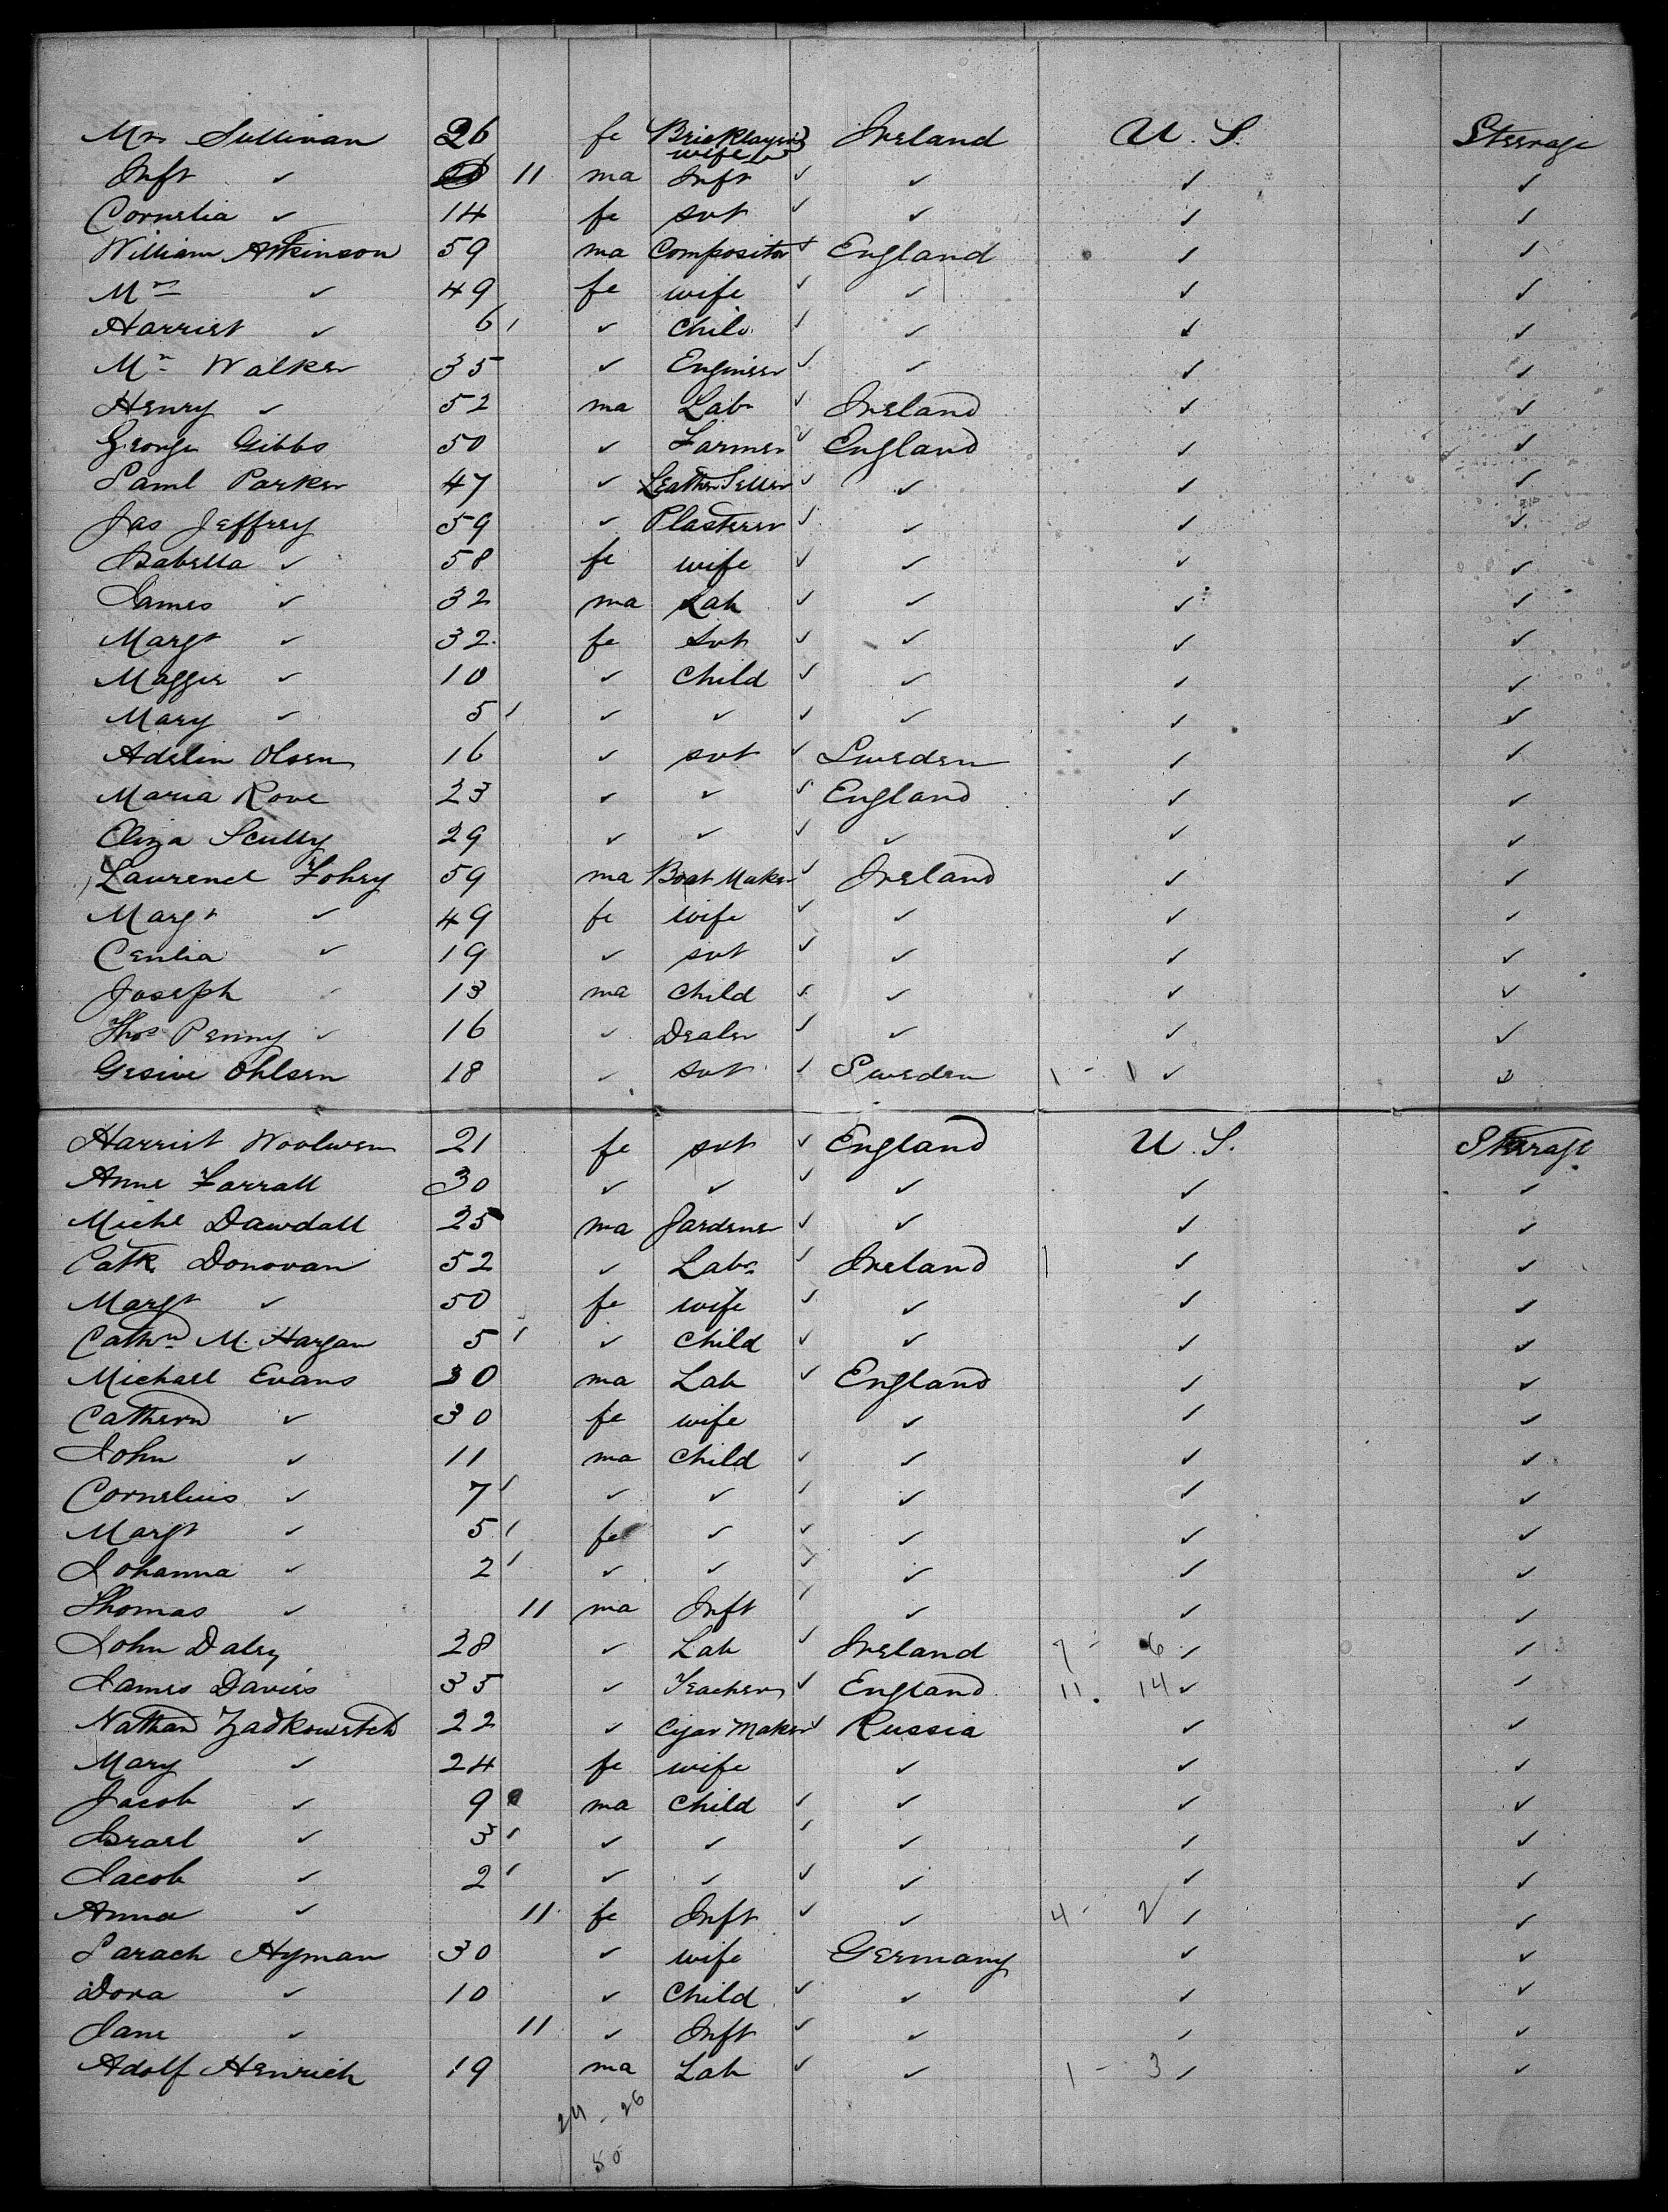 Mrs Sullivan 26 fe Bricklayers wife Ireland U. S. Steerage
Inft ✓ 11 ma Inft ✓ ✓ ✓ ✓
Cornelia ✓ 14 fe svt ✓ ✓ ✓ ✓
William Atkinson 59 ma Compositor ✓ England ✓ ✓
Mrs ✓ 49 fe wife ✓ ✓ ✓ ✓
Harriet ✓ 6 ✓ Child ✓ ✓ ✓ ✓
Mr Walker 35 ✓ Engineer ✓ ✓ ✓ ✓
Henry ✓ 52 ma Labr ✓ Ireland ✓ ✓
George Gibbs 50 ✓ Farmer ✓ England ✓ ✓
Saml Parker 47 ✓ Leather Seller ✓ ✓ ✓ ✓
Jas Jeffrey 59 ✓ Plasterer ✓ ✓ ✓ ✓
Isabella ✓ 58 fe wife ✓ ✓ ✓ ✓
James ✓ 32 ma Lab ✓ ✓ ✓ ✓
Margt ✓ 32 fe svt ✓ ✓ ✓ ✓
Maggie ✓ 10 ✓ Child ✓ ✓ ✓ ✓
Mary ✓ 5 ✓ ✓ ✓ ✓ ✓ ✓
Adelin Olsen 16 ✓ svt ✓ Sweden ✓ ✓
Maria Rove 23 ✓ ✓ ✓ England ✓ ✓
Eliza Scully 29 ✓ ✓ ✓ ✓ ✓ ✓
Laurence Fohey 59 ma Boat Maker ✓ Ireland ✓ ✓
Margt ✓ 49 fe wife ✓ ✓ ✓ ✓
Cenlia ✓ 19 ✓ svt ✓ ✓ ✓ ✓
Joseph ✓ 13 ma Child ✓ ✓ ✓ ✓
Thos Penny ✓ 16 ✓ Dealer ✓ ✓ ✓ ✓
Gesive Ohlsen 18 ✓ svt ✓ Sweden 1 - 1 ✓ ✓
Harriet Woolwen 21 fe svt ✓ England U. S. Steerage
Anne Farrall 30 ✓ ✓ ✓ ✓ ✓ ✓
Michl Dawdall 25 ma Gardener ✓ ✓ ✓ ✓
Patk. Donovan 52 ✓ Labr ✓ Ireland 1 ✓ ✓
Margt ✓ 50 fe wife ✓ ✓ ✓ ✓
Cathn M. Hargan 5 ✓ Child ✓ ✓ ✓ ✓
Michael Evans 30 ma Lab ✓ England ✓ ✓
Cathern ✓ 30 fe wife ✓ ✓ ✓
John ✓ 11 ma Child ✓ ✓ ✓ ✓
Cornelius ✓ 7 ✓ ✓ ✓ ✓ ✓ ✓
Margt ✓ 5 fe ✓ ✓ ✓ ✓ ✓
Johanna ✓ 2 ✓ ✓ ✓ ✓ ✓ ✓
Thomas ✓ 11 ma Inft ✓ ✓ ✓ ✓
John Daley 28 ✓ Lab ✓ Ireland 7 - 6 ✓ ✓
James Davies 35 ✓ Teacher ✓ England 11 . 14 ✓ ✓
Nathan Zadkowitch 22 ✓ Cigar Maker ✓ Russia ✓ ✓
Mary ✓ 24 fe wife ✓ ✓ ✓
Jacob ✓ 9 ma Child ✓ ✓ ✓ ✓
Israel ✓ 3 ✓ ✓ ✓ ✓ ✓ ✓
Jacob ✓ 2 ✓ ✓ ✓ ✓ ✓ ✓
Anna ✓ 11 fe Inft ✓ ✓ 4 - 2 ✓ ✓
Sarach Hyman 30 ✓ wife Germany ✓ ✓
Dora ✓ 10 ✓ Child ✓ ✓ ✓ ✓
Jane ✓ 11 ✓ Inft ✓ ✓ ✓ ✓
Adolf Henrich 19 ma Lab ✓ ✓ 1 - 3 ✓ ✓
24 - 26
50